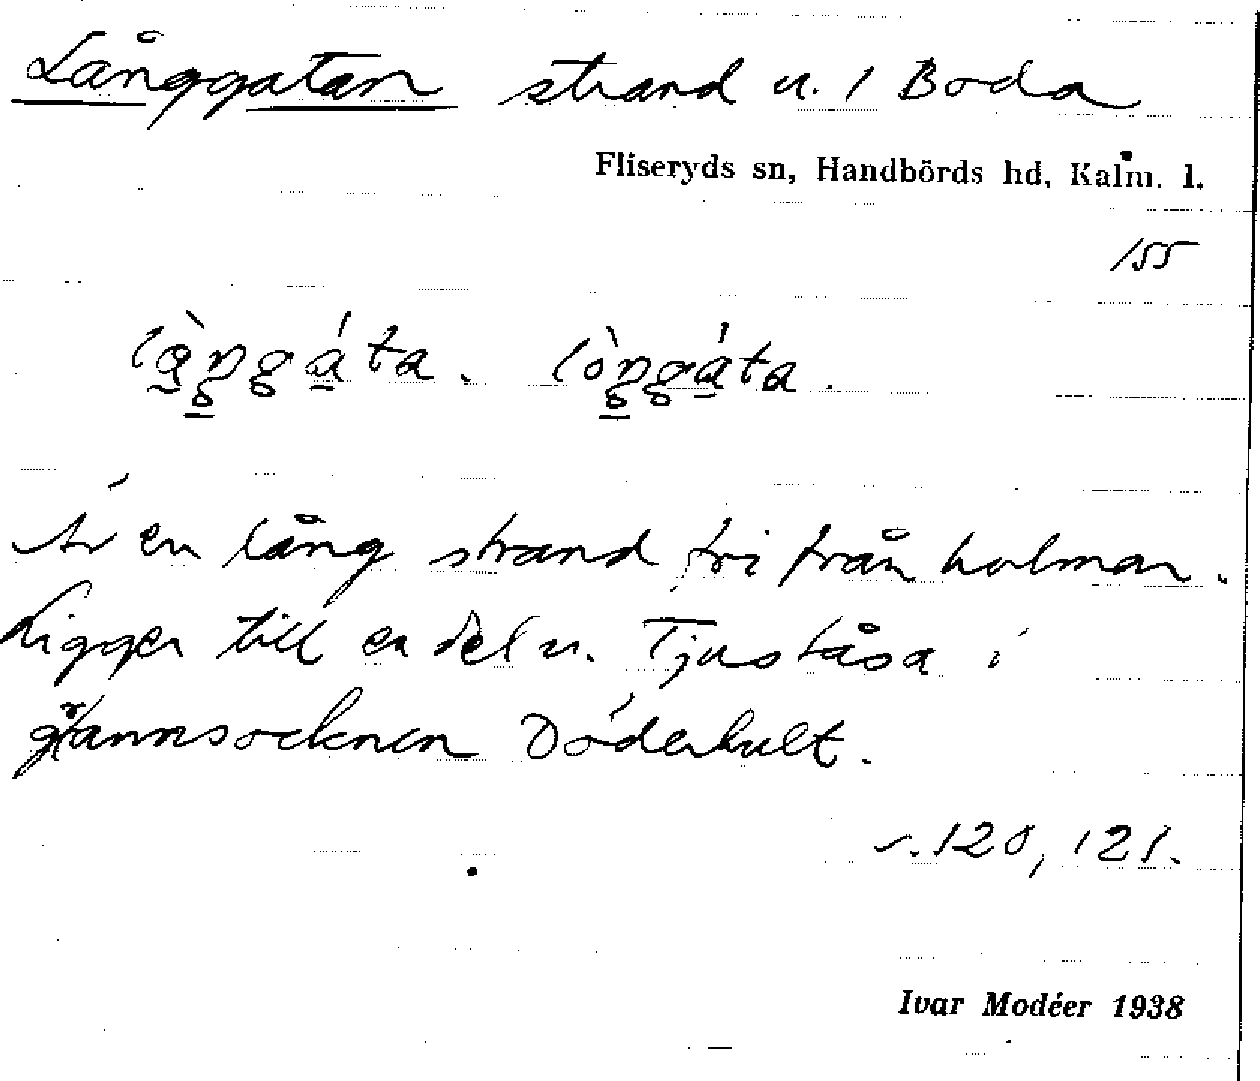 Långgatan strand u. 1 Boda
Fliseryds sn, Handbörds hd, Kalm. l.
155
Är en lång strand fri från holmar.
Ligger till en del u. Tjuståsa i
grannsocknen Döderhult.
s. 120, 121.
Ivar Modéer 1938